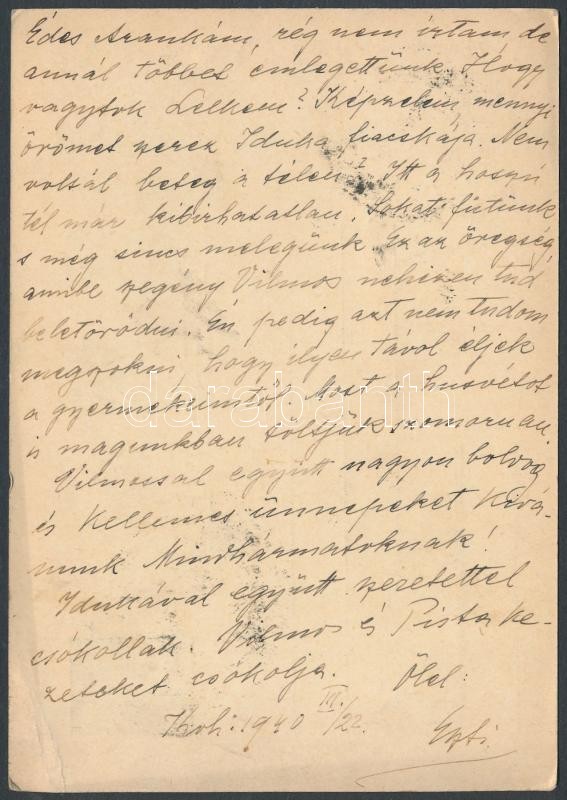 Édes Arankám, rég nem írtam de
annál többet emlegettünk. Hogy
vagytok Lelkem? Képzelem, mennyi
örömet szerez Iduka fiacskája. Nem
voltál beteg a télen? Itt a hosszú
tél már kibirhatatlan. Sokat fűtünk
s még sincs melegünk. Ez az öregség
amibe szegény Vilmos nehezen tud
beletörődni. Én pedig azt nem tudom
megszokni, hogy ilyen távol éljek
a gyermekeimtől. Most a husvétot
is magunkban töltjük szomoruan
Vilmossal együtt nagyon boldog
és kellemes ünnepeket kivá-
nunk Mindhármatoknak!
Idukával együtt szeretettel
csókollak. Vilmos és Pista ke-
zeteket csókolja. Ölel:
1940 III./22. Erzsi.
darabanth